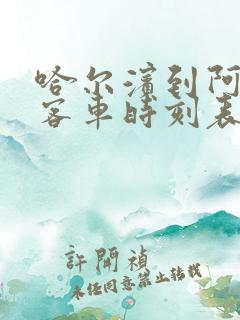 哈尔滨到阿
客车时刻表
許開禎
未经同意禁止转载